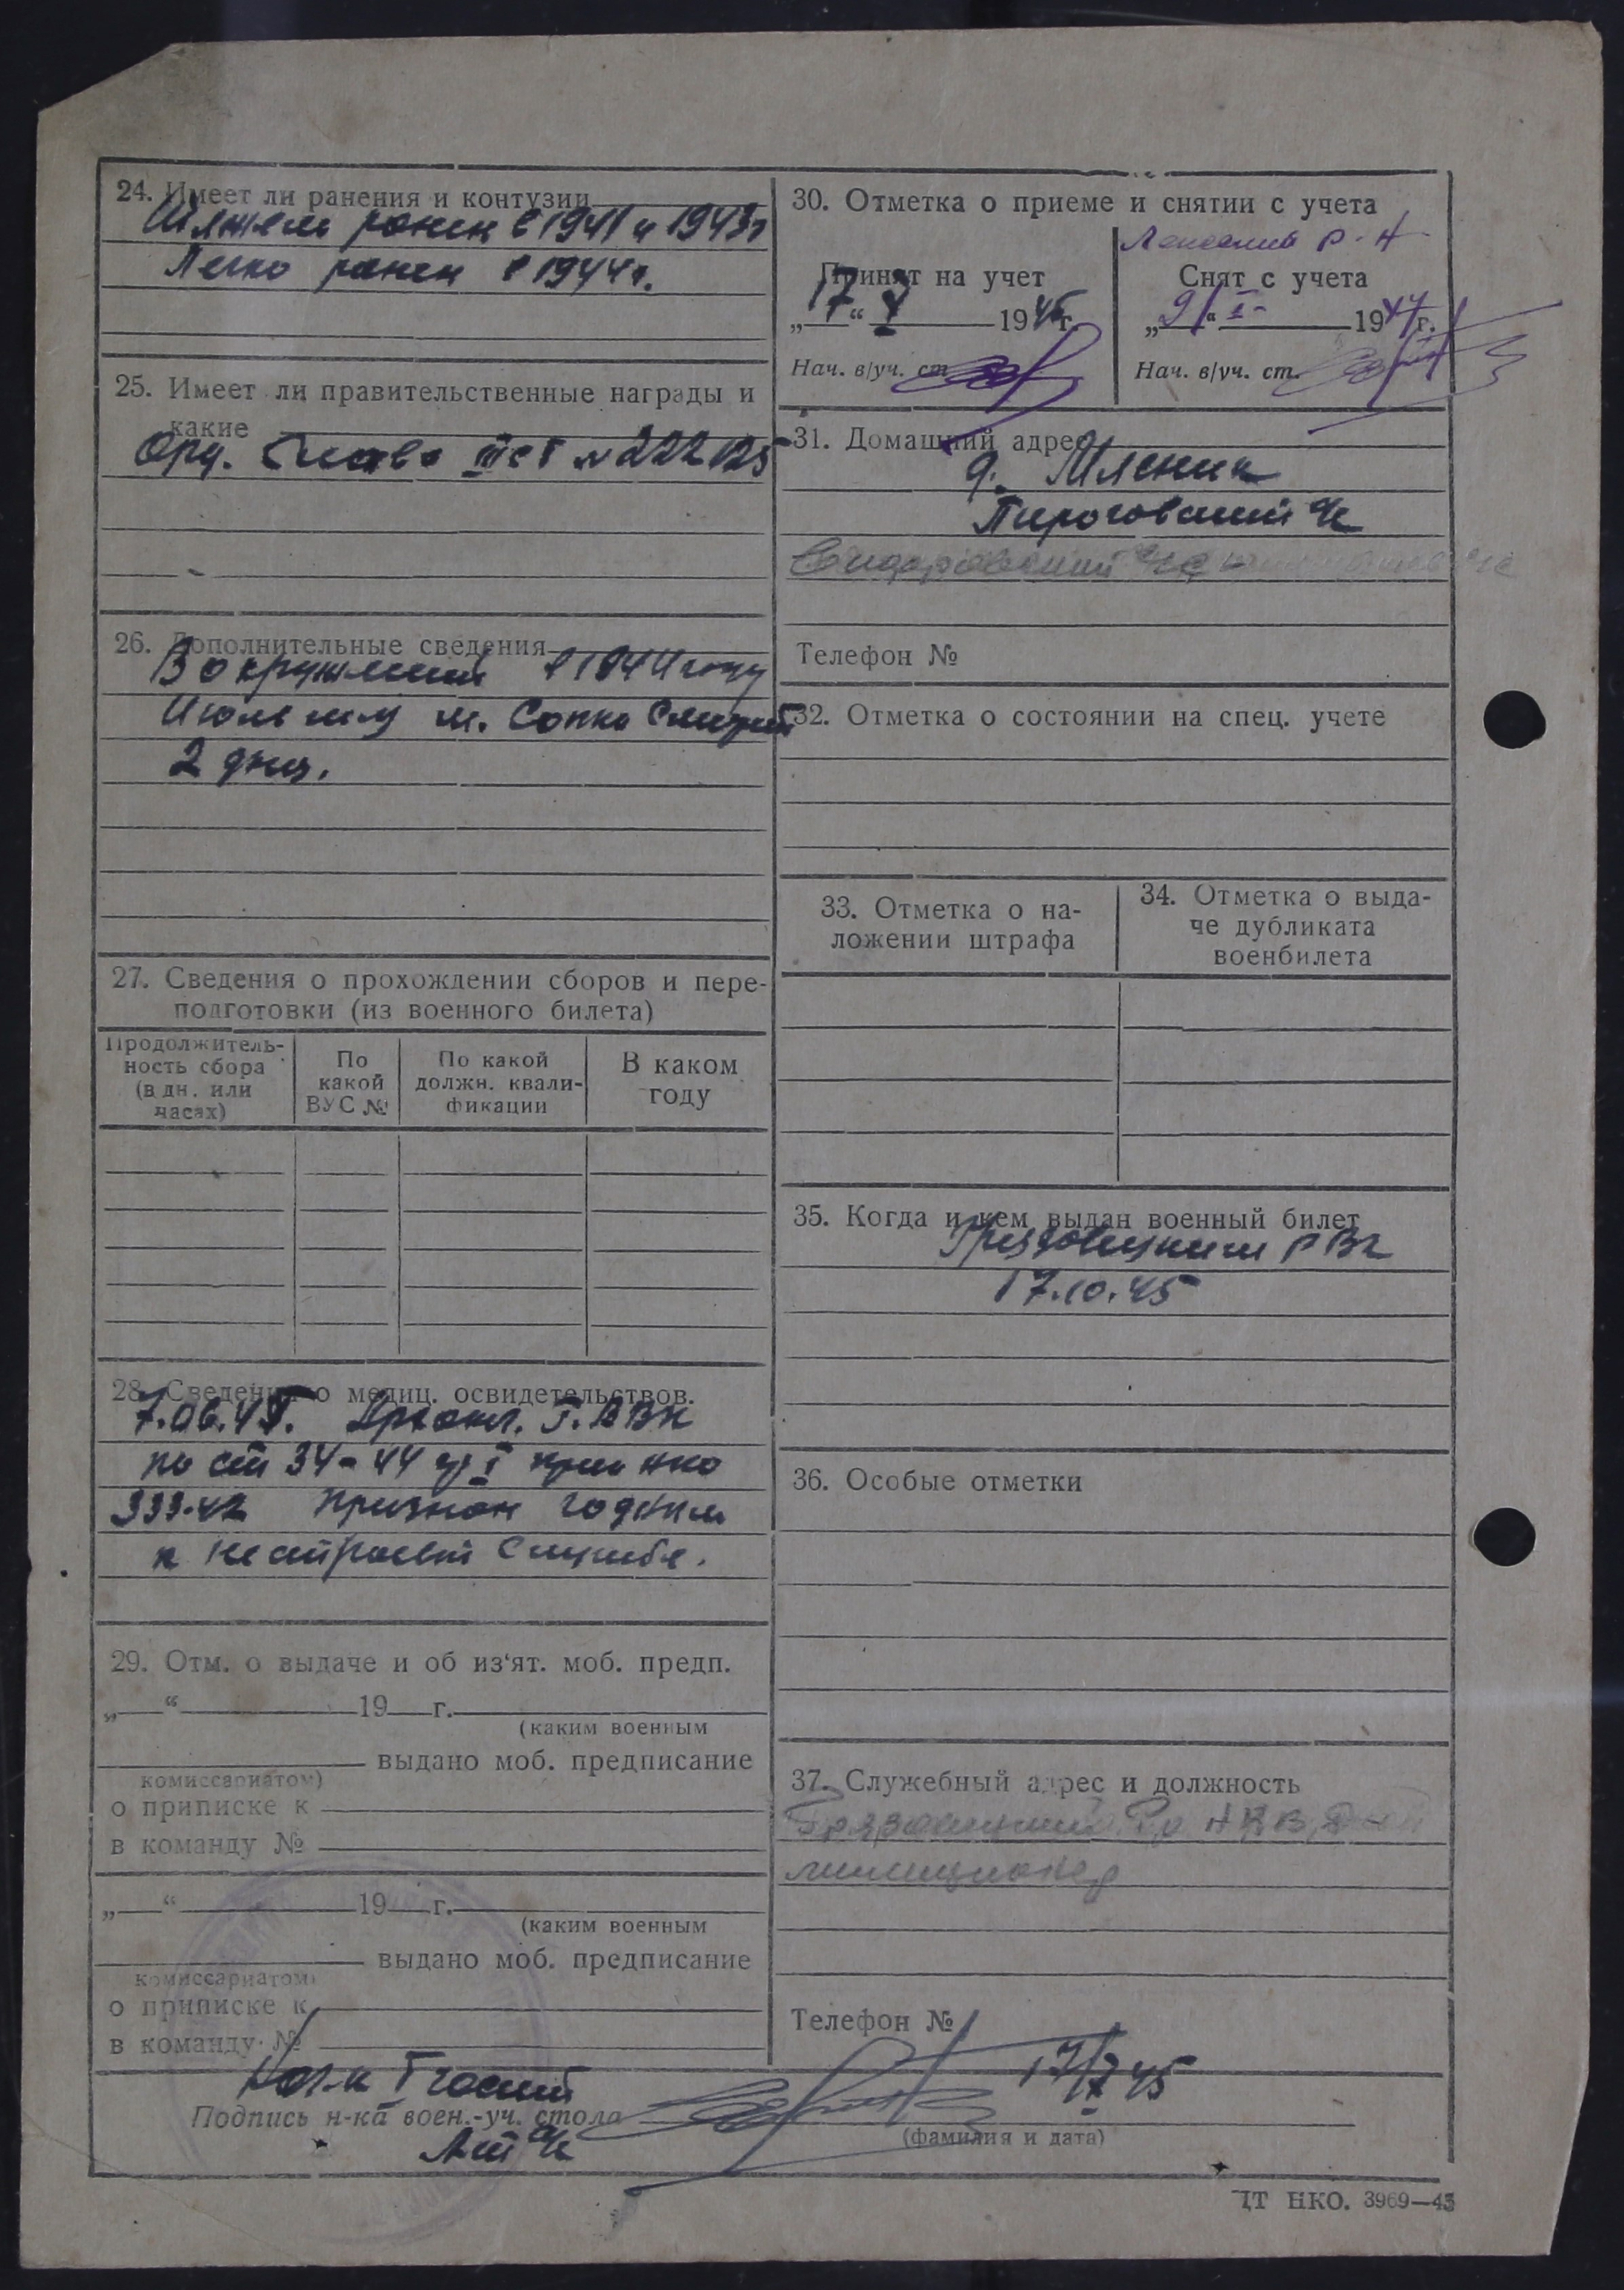 24. Имеет ли ранения и контузии
ранен в 1941 и 1943г
Легко ранен в 1944г.
25. Имеет ли правительственные награды и
какие
Орд. Слава III ст № 222125
26. Дополнительные сведения
В окружении в 1944 году
Июль м. Сопка
2 дня.
27. Сведения о прохождении сборов и пере-
подготовки (из военного билета)
Продолжитель-
ность сбора
(в дн. или
часах)
По
какой
ВУС №
По какой
должн. квали-
фикации
В каком
году
28. Сведения о медиц. освидетельствов.
7.06.45. ВВК
по ст 34-44 гр I прик нко
333-42 признан годным
к нестроевой службе.
29. Отм. о выдаче и об из‘ят. моб. предп.
„ “ 19 г.
(каким военным
выдано моб. предписание
комиссариатом)
о приписке к
в команду №
„ “ 19 г.
(каким военным
выдано моб. предписание
комиссариатом)
о приписке к
в команду №
30. Отметка о приеме и снятии с учета
р-н
Принят на учет
„17“ X 1945г.
Нач. в/уч. ст.
Снят с учета
„9“ I 1947г.
Нач. в/уч. ст.
31. Домашний адрес
д. Мясник
Пироговский с/с
Сидоровский с/с
Телефон №
32. Отметка о состоянии на спец. учете
33. Отметка о на-
ложении штрафа
34. Отметка о выда-
че дубликата
военбилета
35. Когда и кем выдан военный билет
Грязовецким РВК
17.10.45
36. Особые отметки
37. Служебный адрес и должность
Грязовецкий Ро НКВД
милиционер
Телефон №
17/X 45
Нач-к I части
Подпись н-ка воен.-уч. стола
(фамилия и дата)
ЦТ НКО. 3969—45